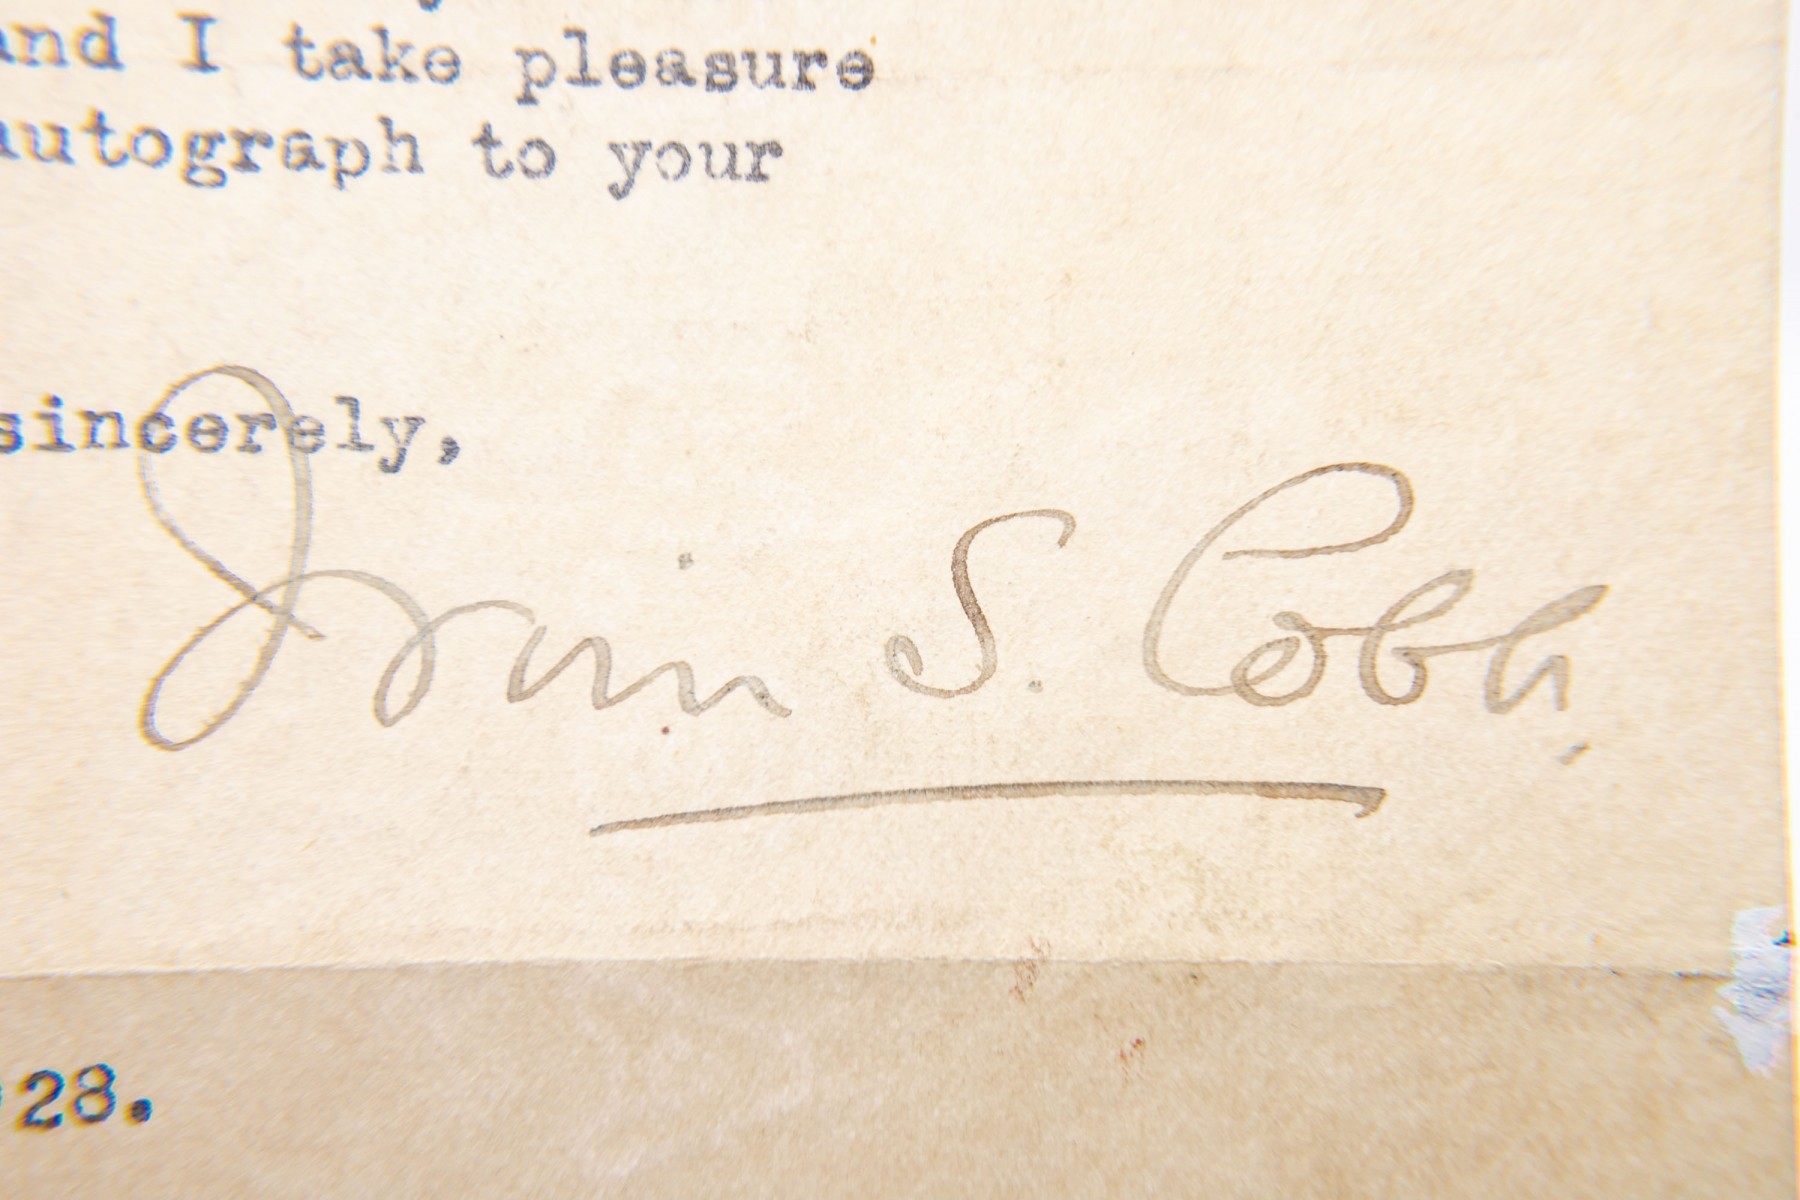 and I take pleasure
autograph to your
sincerely,
Irvin S. Cobb.
928.